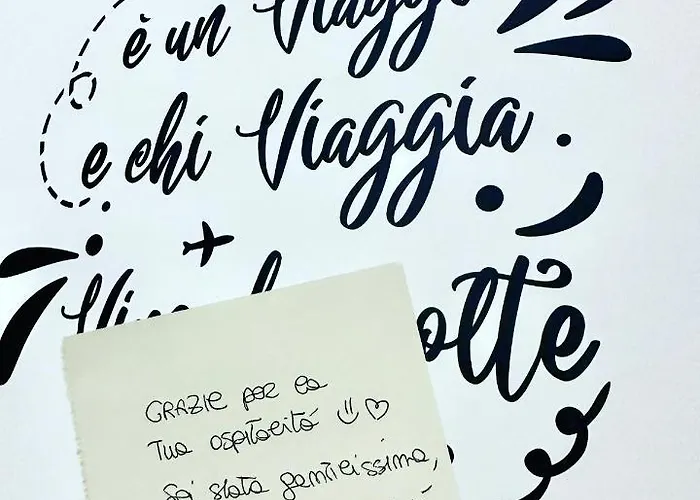 è un Viaggi
e chi Viaggia
olte
GRAZIE per la
Tua ospitalità
Sei stata gentilissima,